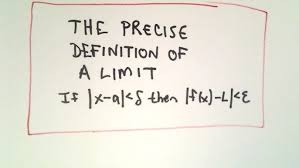 THE PRECISE
DEFINITION OF
A LIMIT
If |x-a|<δ then |f(x)-L|<ε